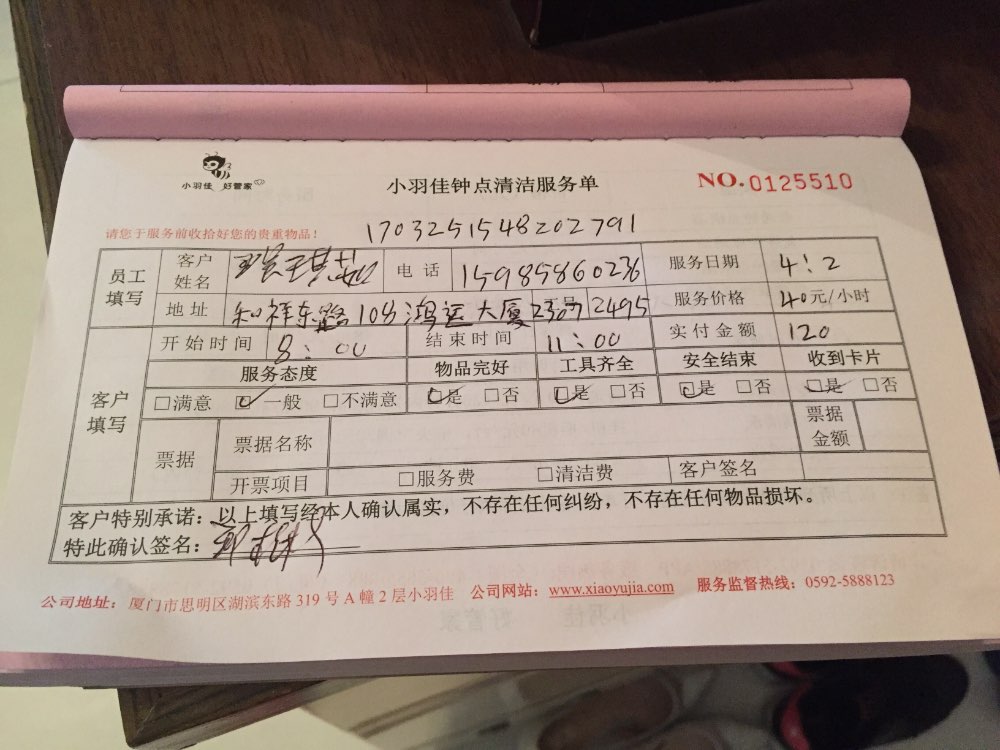 小羽佳 好管家
小羽佳钟点清洁服务单
NO.0125510
请您于服务前收拾好您的贵重物品！
17032515548202791
员工填写 客户姓名 电话 15985860236 服务日期 4:2
地址 和祥东路108鸿运大厦 2495 服务价格 40元/小时
开始时间 8:00 结束时间 11:00 实付金额 120
客户填写 服务态度 物品完好 工具齐全 安全结束 收到卡片
□满意 ☑一般 □不满意 ☑是 □否 ☑是 □否 ☑是 □否 ☑是 □否
票据 票据名称 票据金额
开票项目 □服务费 □清洁费 客户签名
客户特别承诺：以上填写经本人确认属实，不存在任何纠纷，不存在任何物品损坏。
特此确认签名：
公司地址：厦门市思明区湖滨东路 319 号 A 幢 2 层小羽佳 公司网站：www.xiaoyujia.com 服务监督热线：0592-5888123